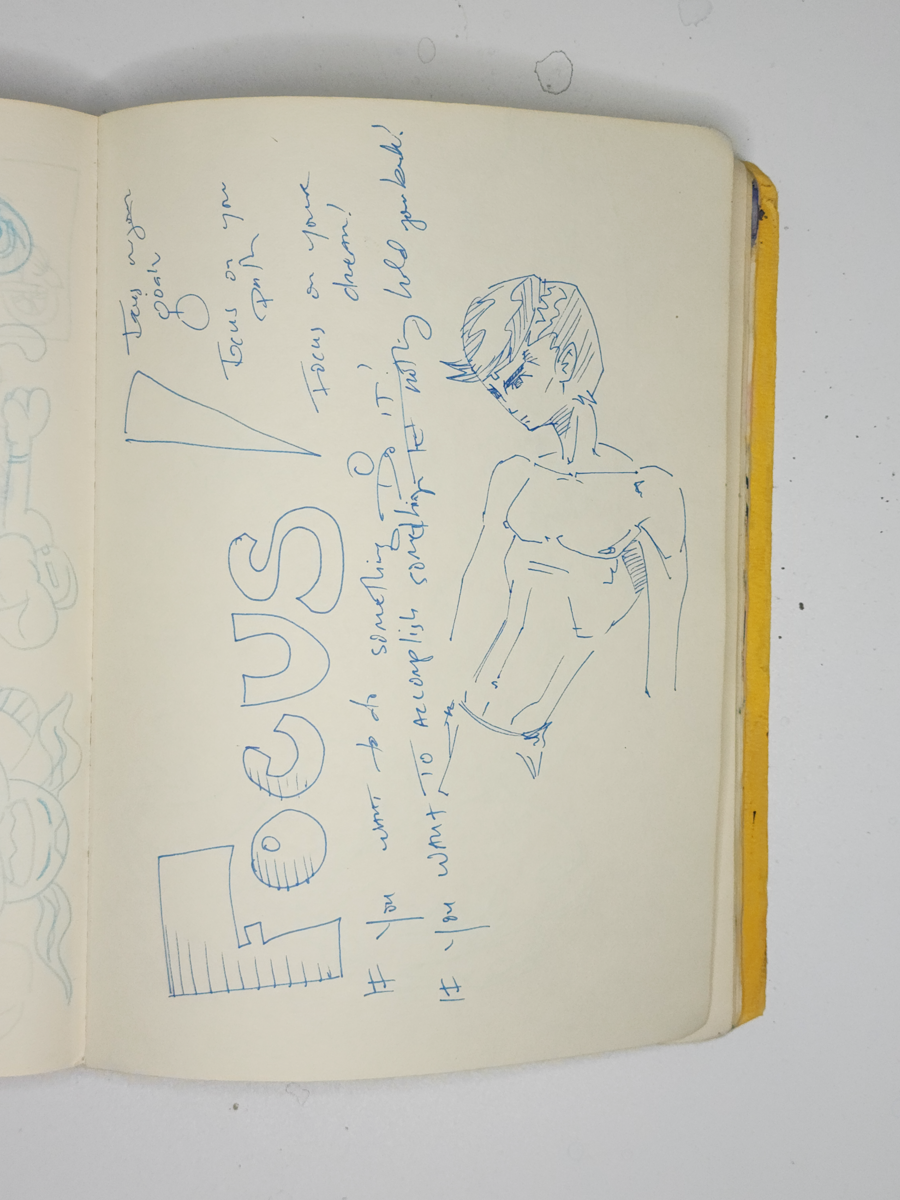 FOCUS!
Focus on your
goals
Focus on you
path
Focus on your
dream!
If you want to do something Do IT!
If you want to accomplish something let nothing hold you back!